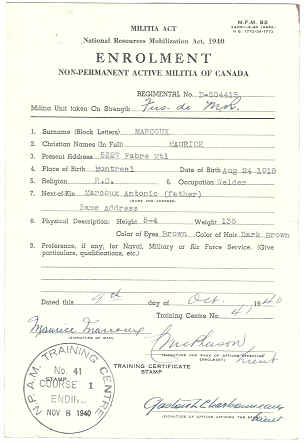 MILITIA ACT
National Resources Mobilization Act, 1940
M.F.M. 83
ENROLMENT
NON-PERMANENT ACTIVE MILITIA OF CANADA
REGIMENTAL No. D-504415
Militia Unit taken On Strength Fus. de Mon.
1. Surname (Block Letters) MARCOUX
2. Christian Names (In Full) MAURICE
3. Present Address 5227 Fabre Mtl
4. Place of Birth Montreal Date of Birth Aug 24 1918
5. Religion R.C. 6. Occupation Welder
7. Next-of-Kin Marcoux Antonio (father)
Same Address
8. Physical Description: Height 5-4 Weight 135
Color of Eyes Brown Color of Hair Dark Brown
9. Preference, if any, for Naval, Military or Air Force Service. (Give
particulars, qualifications, etc.)
Dated this 9th day of Oct. 1940
Training Centre No. 41
Maurice Marcoux
(SIGNATURE OF MAN)
TRAINING CERTIFICATE
STAMP
N.P.A.M. TRAINING CENTRE
No. 41
STAMP
COURSE 1
ENDING
NOV 8 1940